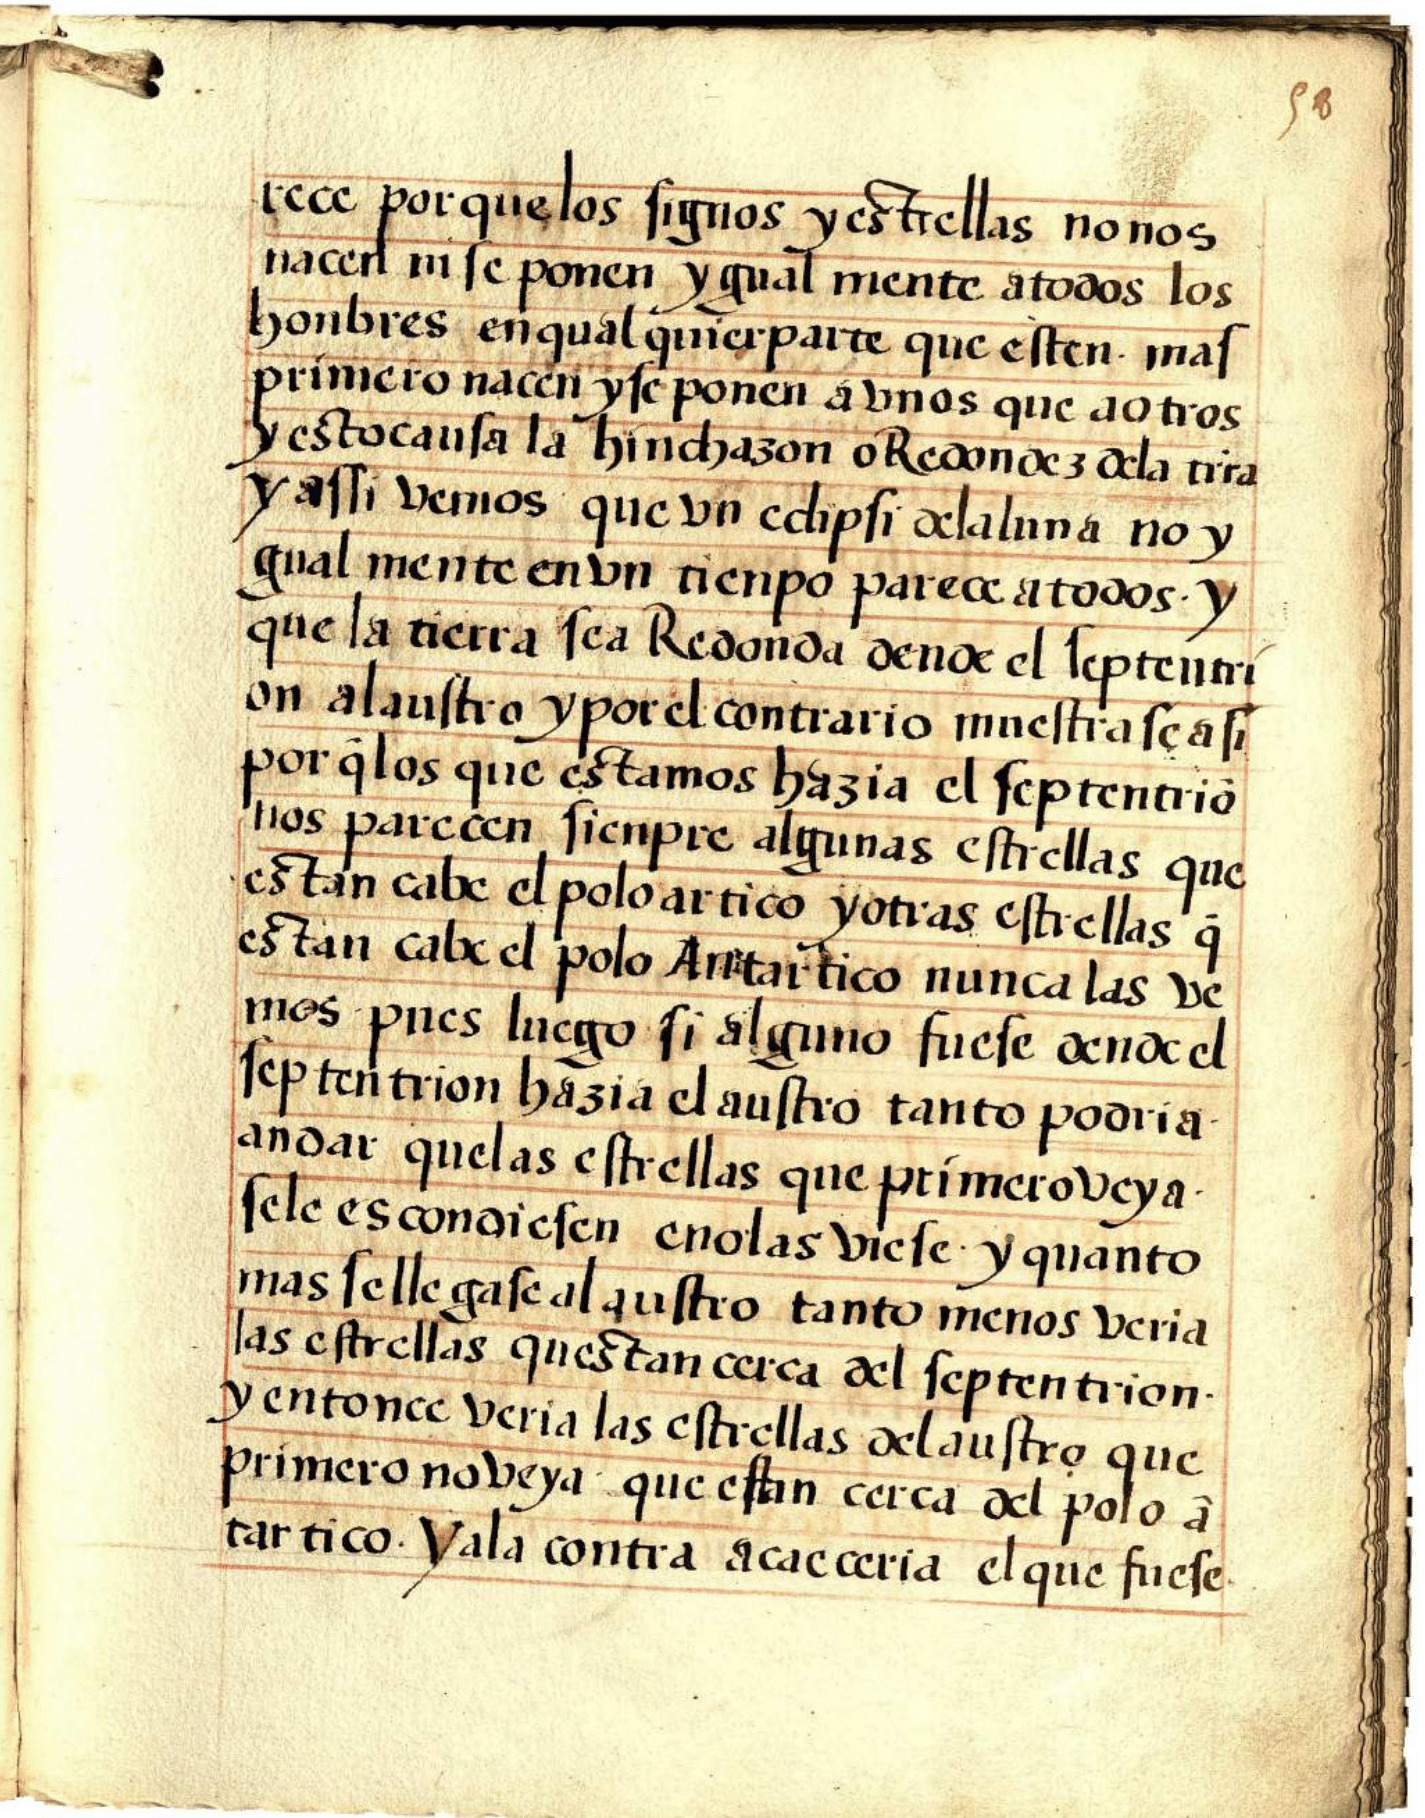 58
rece porque los signos y estrellas no nos
nacen ni se ponen ygual mente a todos los
honbres en qual quier parte que esten. mas
primero nacen y se ponen a vnos que a otros
y esto causa la hinchazon o Redondez dela tirra
y assi vemos que vn eclipsi dela luna no y
gual mente en vn tienpo parece a todos. Y
que la tierra sea Redonda dende el septentri
on al austro y por el contrario muestra se asi
por q̃ los que estamos hazia el septentriõ
nos parecen sienpre algunas estrellas que
estan cabe el polo artico y otras estrellas q̃
estan cabe el polo Antartico nunca las ve
mos pues luego si alguno fuese dende el
septentrion hazia el austro tanto podria
andar que las estrellas que primero veya.
sele escondiesen e no las viese. y quanto
mas se llegase al austro tanto menos veria
las estrellas questan cerca del septentrion.
y entonce veria las estrellas del austro que
primero no veya que estan cerca del polo ã
tartico. Y ala contra acaeceria el que fuese.